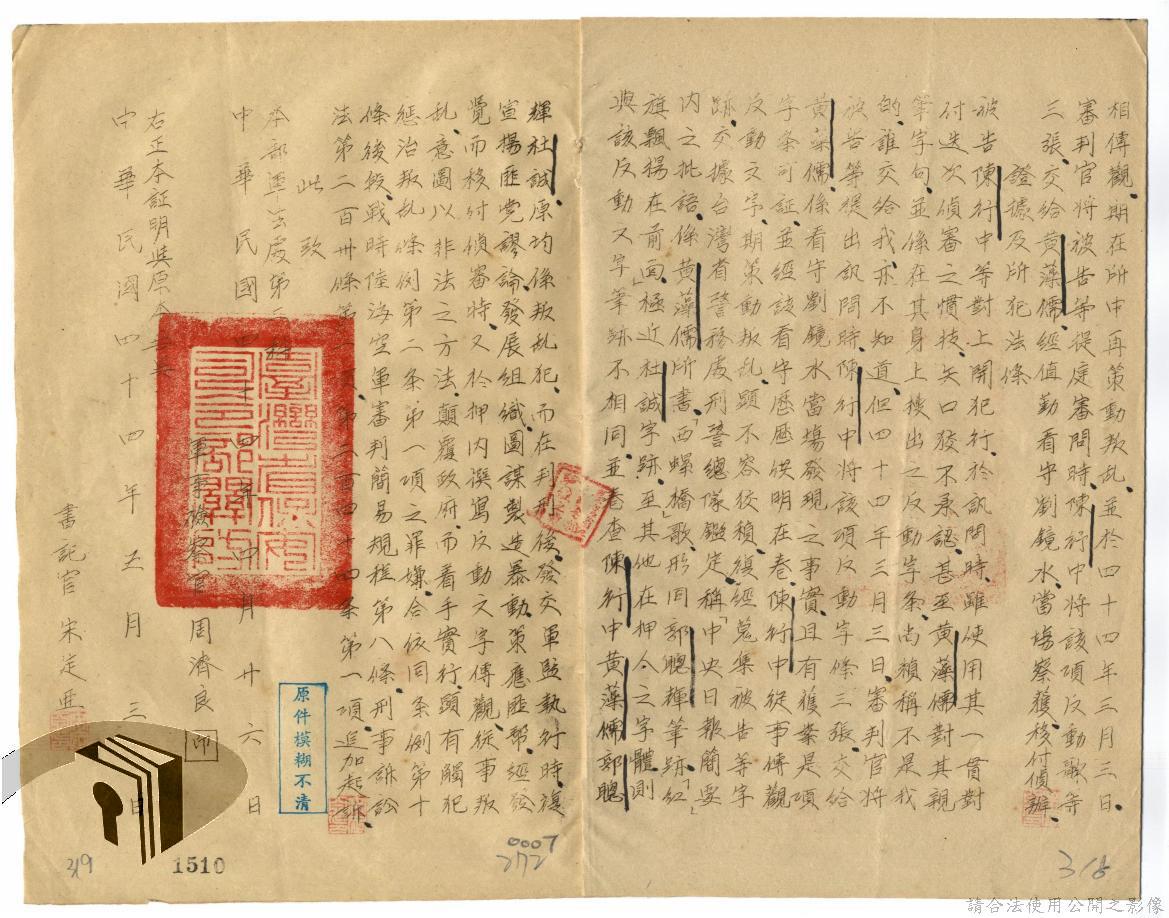 相傳觀、期在所中再策動叛乱、並於四十四年三月三日、
審判官將被告等提庭審問時、陳行中將該項反動歌等
三張、交給黃藻儒、經值勤看守劉鏡水、當場察獲、移付偵辦、
證據及所犯法條
被告陳行中等對上開犯行、於訊問時、雖使用其一貫對
付迭次偵審之慣技、矢口狡不承認、甚至黃藻儒對其親
筆字句、並係在其身上搜出之反動字条、尚稹稱不是我
的誰交給我、亦不知道、但四十四年三月三日、審判官將
被告等提出訊問時、陳行中將該項反動字條三張交給
黃藻儒、係看守劉鏡水當場發現之事實、且有獲案是項
字条可証、並經該看守歷歷供明在卷、陳行中從事傳觀
反動文字、期策動叛乱、顯不容狡稹、復經蒐集被告等字
跡、交據台灣省警務處刑警總隊鑑定、稱「中央日報簡要
內之批語、係黃藻儒所書、「西螺橋」歌形同郭聰輝筆跡、「紅
旗飄揚在前面」極近杜誠字跡、至其他在押人之字體、則
與該反動文字筆跡不相同、並卷查陳行中黃藻儒郭聰
輝杜誠、原均係叛乱犯、而在判刑後發交軍監執行時、復
宣揚匪党謬論、發展組織、圖謀製造暴動、策應匪幫、經發
覺而移付偵審時、又於押內撰寫反動文字傳觀、從事叛
乱、意圖以非法之方法、顛覆政府、而着手實行、顯有觸犯
懲治叛乱條例第二条第一項之罪嫌、合依同条例第十
條後段、戰時陸海空軍審判簡易規程第八條、刑事訴訟
法第二百卅條第一項第二百四十四条第一項、追加起訴、
此致
本部軍法處第二科
中華民國四十四年四月廿六日
軍事檢察官周濟良 印
右正本証明與原本無異
中華民國四十四年五月三日
書記官宋定亞
原件模糊不清
0007
272
318
319
1510
請合法使用公開之影像